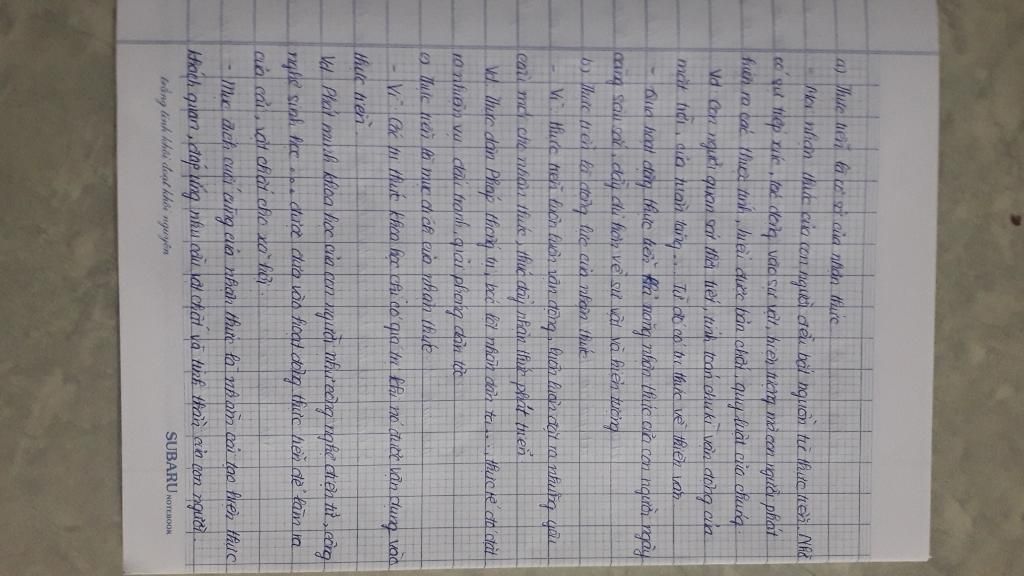 a) Thực tiễn là cơ sở của nhận thức
- Mọi nhận thức của con người đều bắt nguồn từ thực tiễn. Nhờ
có sự tiếp xúc, tác động vào sự vật, hiện tượng mà con người phát
hiện ra các thuộc tính, hiểu được bản chất, quy luật của chúng.
Vd Con người quan sát thời tiết, tính toán chu kì vận động của
mặt trời, của tuần trăng... Từ đó có tri thức về thiên văn
- Qua hoạt động thực tiễn mỗi nhận thức của con người ngày
càng sâu sắc, đầy đủ hơn về sự vật và hiện tượng
b) Thực tiễn là động lực của nhận thức
- Vì thực tiễn luôn luôn vận động, luôn luôn đặt ra những yêu
cầu mới cho nhận thức, thúc đẩy nhận thức phát triển.
Vd Thực dân Pháp thống trị, bóc lột nhân dân ta..., thực tế đó đặt
ra nhiệm vụ đấu tranh, giải phóng dân tộc
c) Thực tiễn là mục đích của nhận thức
- Vì: Các tri thức khoa học chỉ có giá trị khi nó được vận dụng vào
thực tiễn.
Vd Phát minh khoa học của con người như công nghệ điện tử, công
nghệ sinh học.... được đưa vào hoạt động thực tiễn để làm ra
của cải, vật chất cho xã hội.
- Mục đích cuối cùng của nhận thức là nhằm cải tạo hiện thực
khách quan, đáp ứng nhu cầu vật chất và tinh thần của con người
SUBARU NOTEBOOK